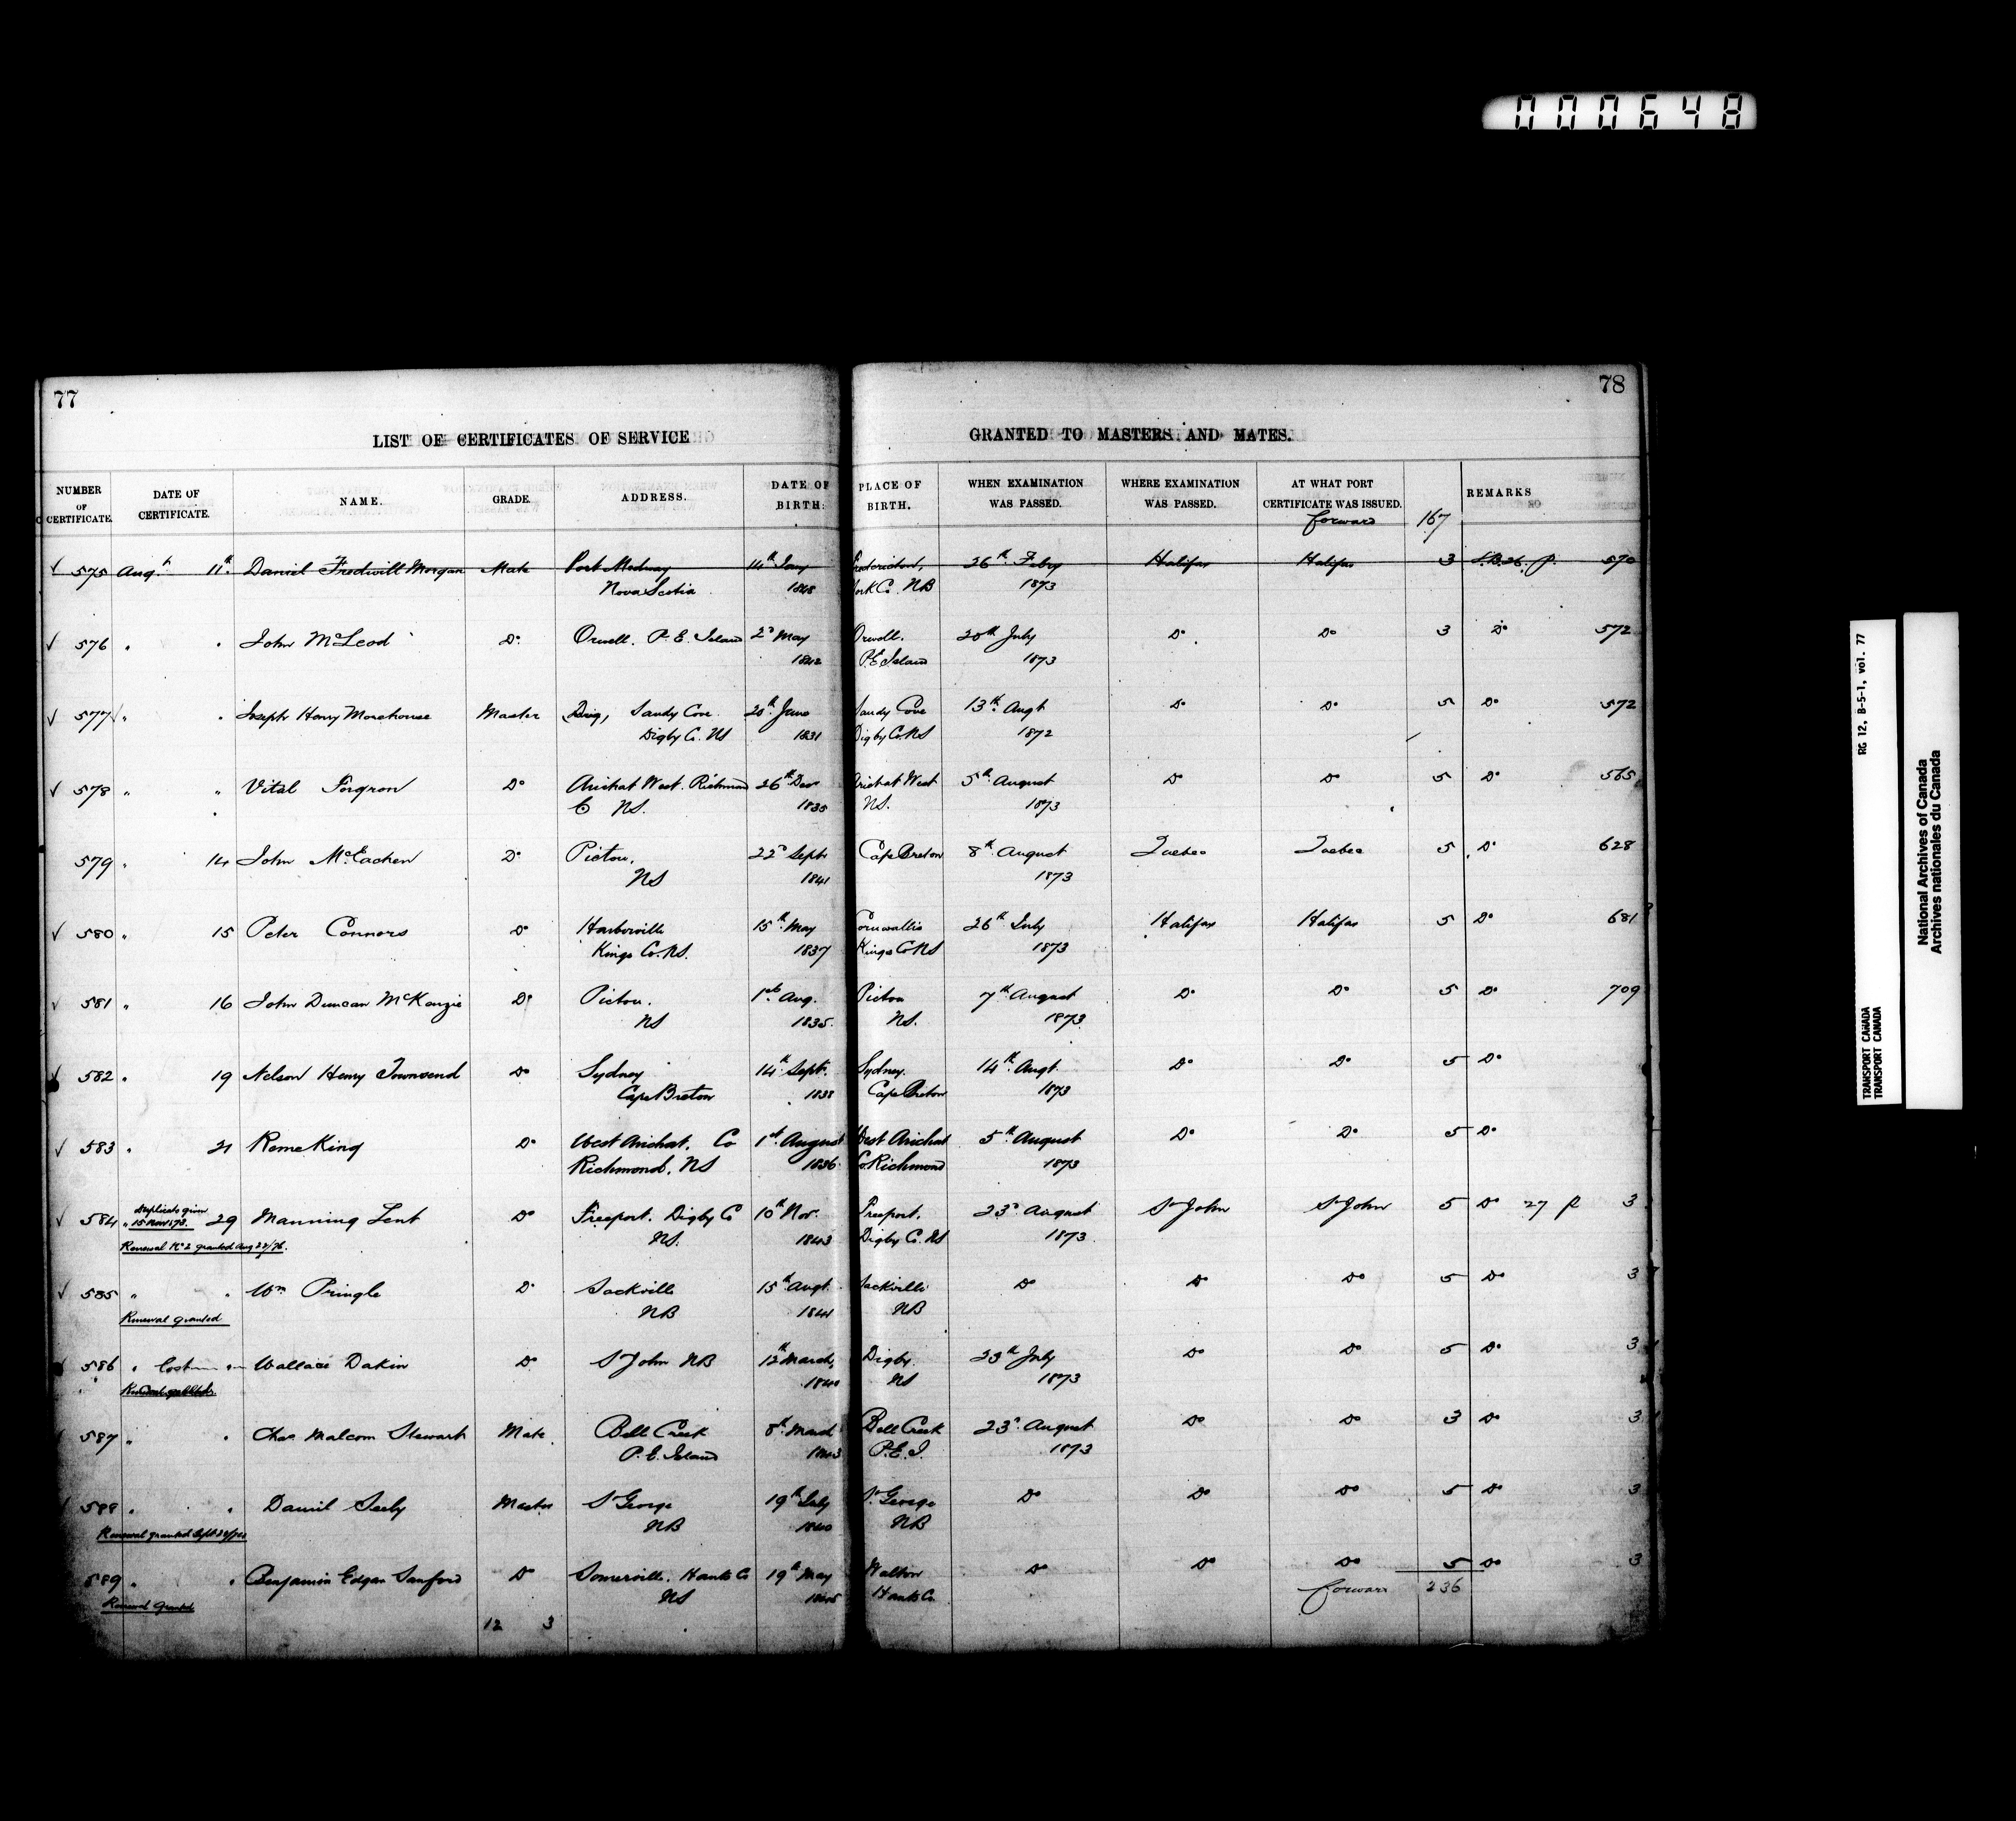 000648
77
78
LIST OF CERTIFICATES OF SERVICE
GRANTED TO MASTERS AND MATES.
NUMBER OF CERTIFICATE. DATE OF CERTIFICATE. NAME. GRADE. ADDRESS. DATE OF BIRTH. PLACE OF BIRTH. WHEN EXAMINATION WAS PASSED. WHERE EXAMINATION WAS PASSED. AT WHAT PORT CERTIFICATE WAS ISSUED. REMARKS
forward 167
575 Aug. 11th Daniel Fredwill Morgan Mate Port Medway 14th Jany Fredericton, 26th Feby Halifax Halifax 3 570
Nova Scotia 1848 York Co. NB 1873
576 " " John McLeod Do Orwell. P.E. Island 2d May Orwell. 20th July Do Do 3 Do 572
1842 P.E Island 1873
577 " " Joseph Henry Morehouse Master Sandy Cove 20th June Sandy Cove 13th Augt Do Do 5 Do 572
Digby Co. NS 1831 Digby Co. NS 1872
578 " " Vital Forgron Do Arichat West. Richmond 26th Decr Arichat West 5th August Do Do 5 Do 565
Co NS. 1835 NS. 1873
579 " 14 John McEachen Do Pictou, 22d Septr Cape Breton 8th August Quebec Quebec 5 Do 628
NS 1841 1873
580 " 15 Peter Connors Do Harborville 15th May Cornwallis 26th July Halifax Halifax 5 Do 681
Kings Co. NS. 1837 Kings Co NS 1873
581 " 16 John Duncan McKenzie Do Pictou. 1st Aug. Pictou 7th August Do Do 5 Do 709
NS 1835. NS. 1873
582 " 19 Nelson Henry Townsend Do Sydney 14th Sept. Sydney. 14th Augt Do Do 5 Do
Cape Breton 1838 Cape Breton 1873
583 " 21 Reme King Do West Arichat, Co 1st August West Arichat 5th August Do Do 5 Do
Richmond, NS 1836 Co Richmond 1873
584 Duplicate given " 15 Nov 173. 29 Manning Lent Do Freeport. Digby Co 10th Nov. Freeport, 23d August St John St John 5 Do 27 p 3
Renewal No 2 granted Aug 22/76. NS. 1843 Digby Co. NS 1873
585 " " Wm Pringle Do Sackville 15th Augt. Sackville Do Do Do 5 Do 3
Renewal granted NB 1841 NB
586 " Lost " Wallace Dakin Do St John NB 12th March, Digby 23th July Do Do 5 Do 3
Renewal granted 1840 NS 1873
587 " " Chas Malcom Stewart Mate Bell Creek 8th March Bell Creek 23d August Do Do 3 Do 3
P.E. Island 1843 P.E.I. 1873
588 " " Daniel Seely Master St George 19th July St. George Do Do Do 5 Do 3
Renewal granted NB 1840 NB
589 " " Benjamin Edgar Sanford Do Somerville. Hants Co 19th May Walton Do Do Do 5 Do 3
Renewal Granted NS 1845 Hants Co.
forward 236
12 3
RG 12, B-5-1, vol. 77
TRANSPORT CANADA
TRANSPORT CANADA
National Archives of Canada
Archives nationales du Canada